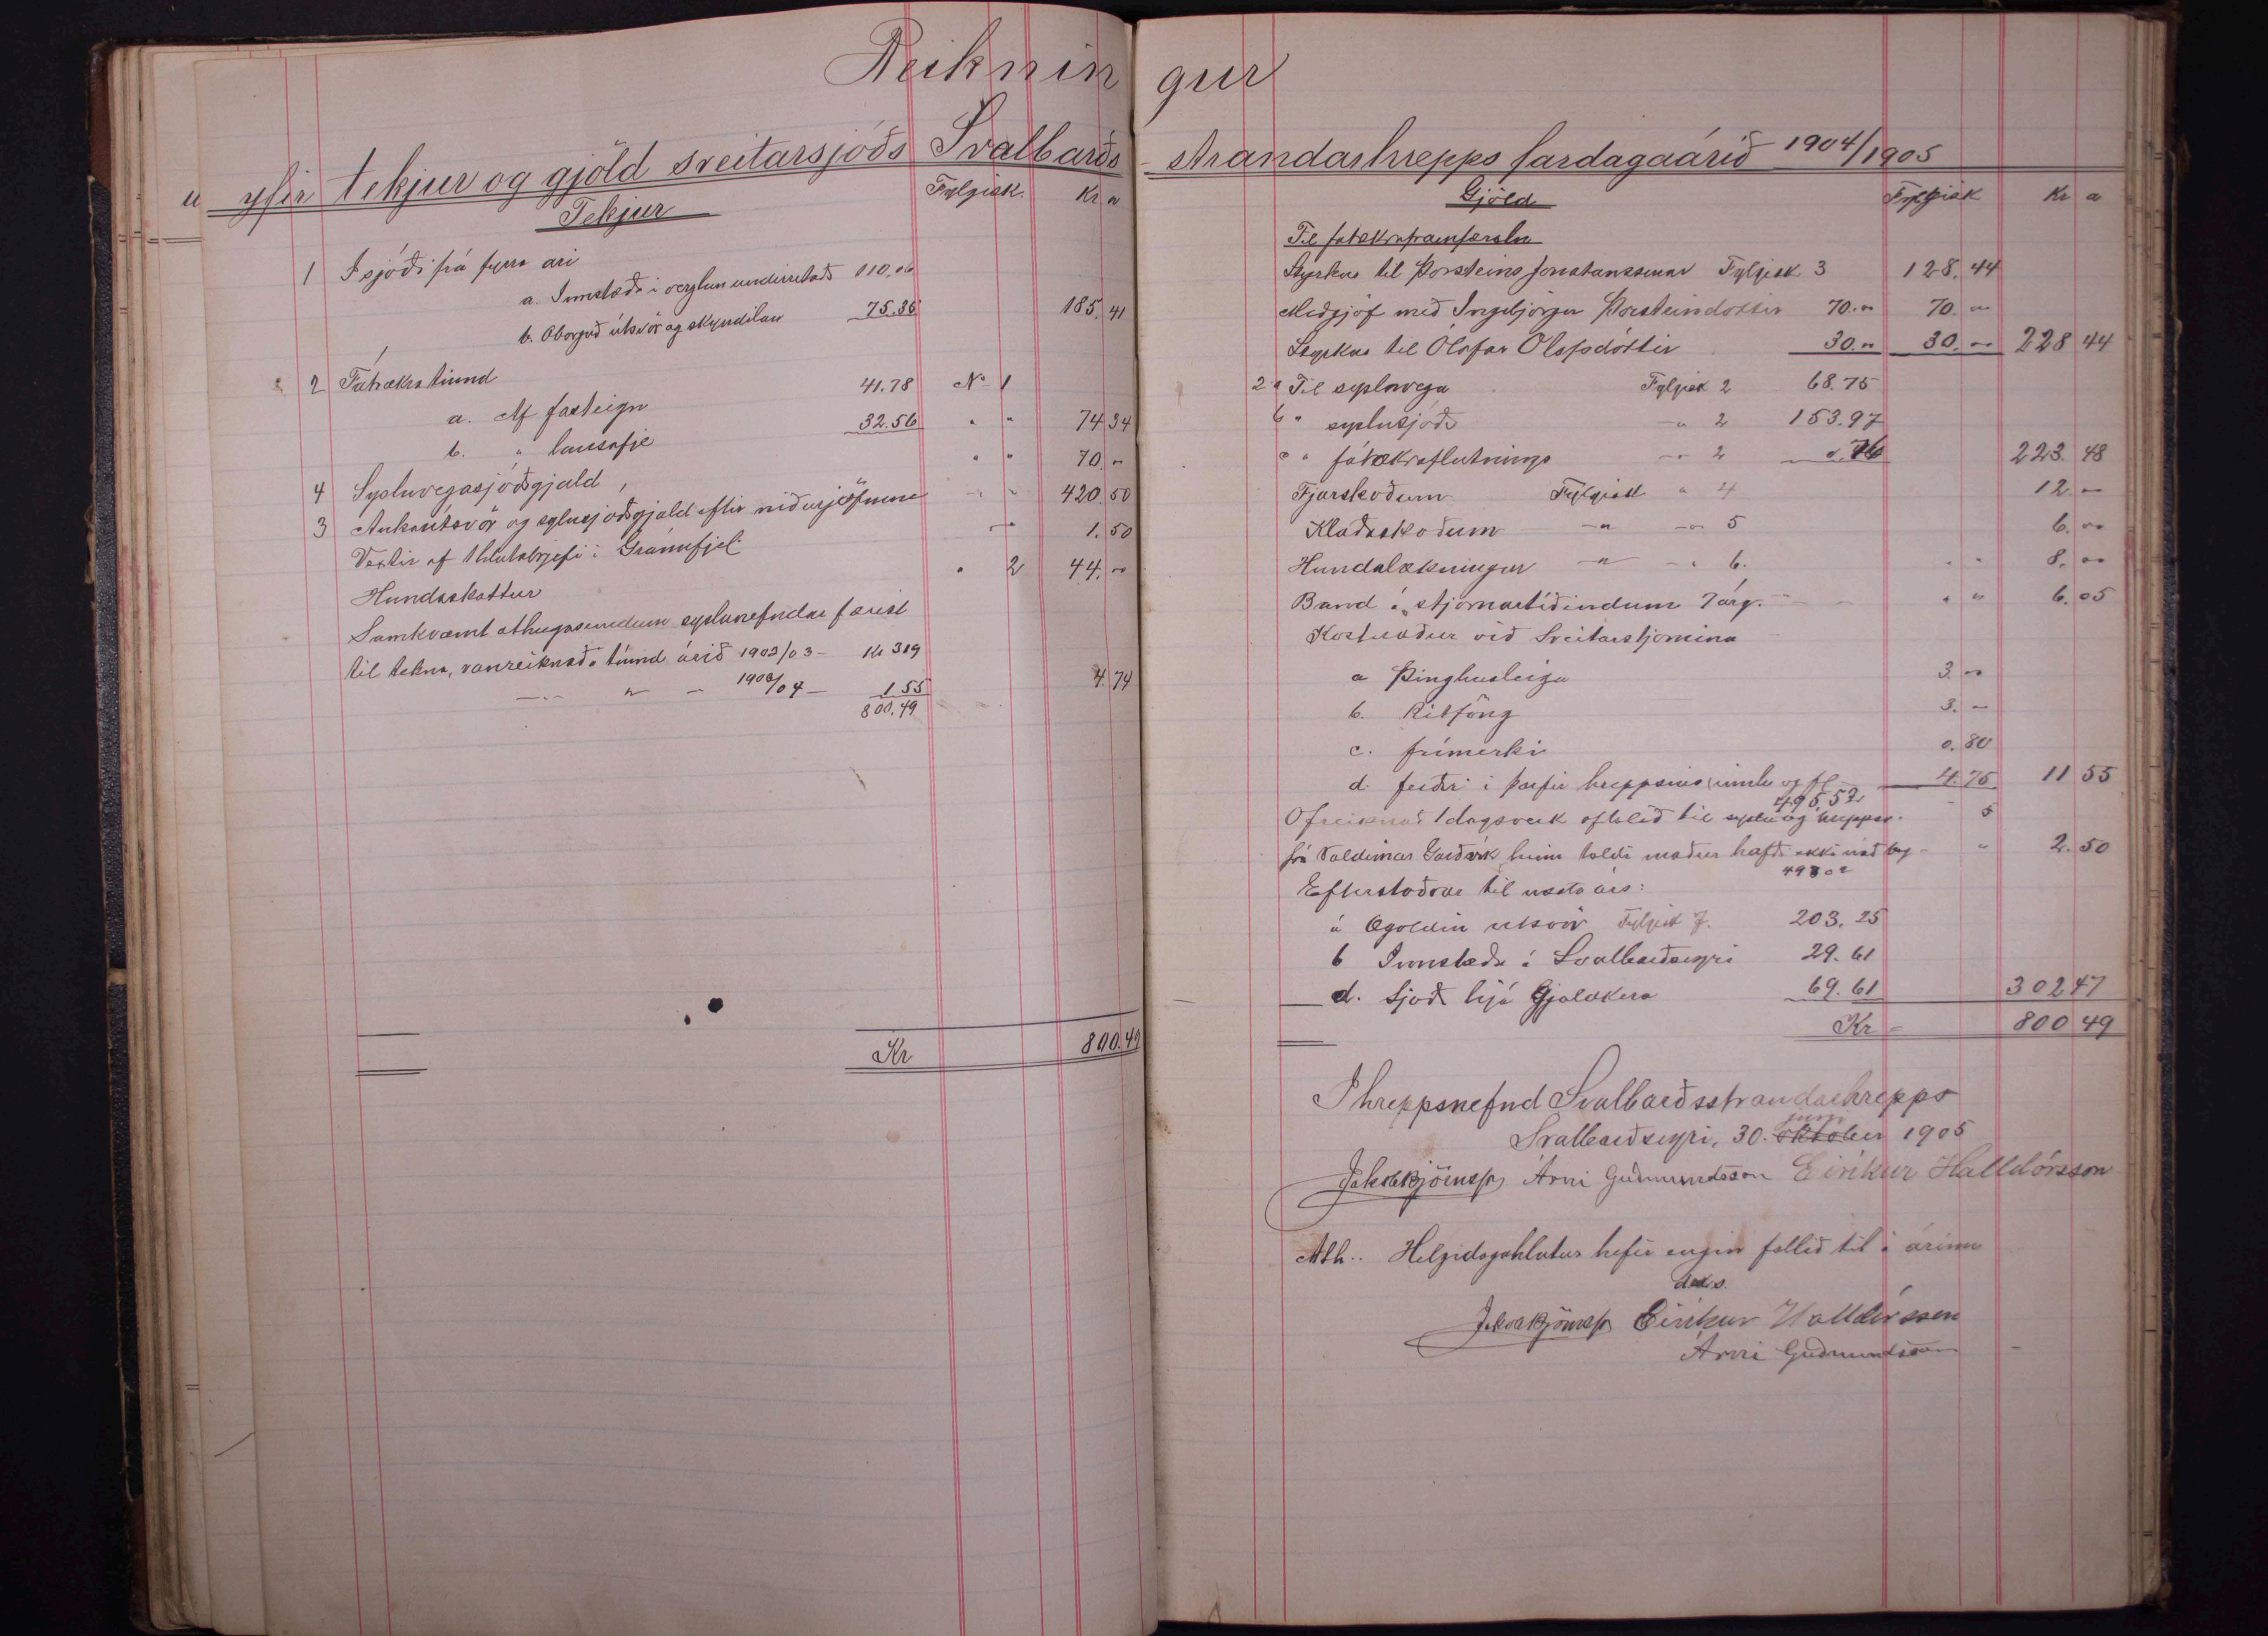 Reiknin gur
yfir tekjur og gjöld sveitarsjóðs Svalbarðs
Tekjur Fylgisk. Kr a
1 Í sjóði frá fyrra ári
a. Innstæði í verzlun undirritaðs 110,06
b. Oborguð útsvör og skyndilán 75.36 185. 41
2 Fátækratíund
a. Af fasteign 41.78 No 1
b. " lausafje 32.56 " " 74 34
4 Sysluvegasjóðsgjald " " 70. "
3 Aukaútsvör og syslusjóðsgjald eftir niðurjöfnun " " 420 50
Vextir af 1 hlutabrjefi í Gránufjel. " 1. 50
Hundaskattur " 2 44. "
Samkvæmt athugasemdum syslunefndar færist
til tekna, vanreiknaða tíund árið 1902/03 - Kr 319
— " — 1903/04 — 1 55 4. 74
800,49
Kr 800.49
strandarhrepps fardagaárið 1904/1905
Gjöld Fylgisk Kr a
Til fátækraframfærslu
Styrkur til Þorsteins Jonatanssonar Fylgisk 3 128. 44
Meðgjöf með Ingibjörgu Þorsteindottir 70. " 70. "
Styrkur til Ólafar Olafsdóttir 30. " 30. " 228 44
2 a Til sysluvega Fylgisk 2 68. 75
b " syslusjóðs — " 2 153.97
c " fátækraflutnings — " 2 0.76 223. 48
Fjarskoðum Fylgisk " 4 12. "
Klaðaskoðum — " — " 5 6. "
Hundalækningar — " — " 6. " " 8. "
Band á stjornartíðindum 7 árg. " " 6. 05
Kostnaður við Sveitarstjornina
a Þinghusleiga 3. "
b. Ritföng 3. "
c. frímerki 0. 80
d. ferðir í þarfir hreppsins 4. 75 11 55
495,52
Ofreiknað 1 dagsverk oftalið til syslu og hrepps.
frá Valdimar Garðsvík " 2. 50
498 02
Efterstöðvar til næsta árs:
á Ogoldin utsvör Fylgisk 7. 203. 25
b Innstæða á Svalbarðseyri 29. 61
d. Sjóð hjá Gjaldkera 69. 61 302 47
Kr = 800 49
Í hreppsnefnd Svalbarðsstrandarhrepps
juni
Svalbarðseyri, 30. oktober 1905
Árni Guðmundsson Eiríkur Halldórsson
Ath.. Helgidagahlutur hefir engin fallið til á árinu
Eiríkur Halldórsson
Árni Guðmundsson